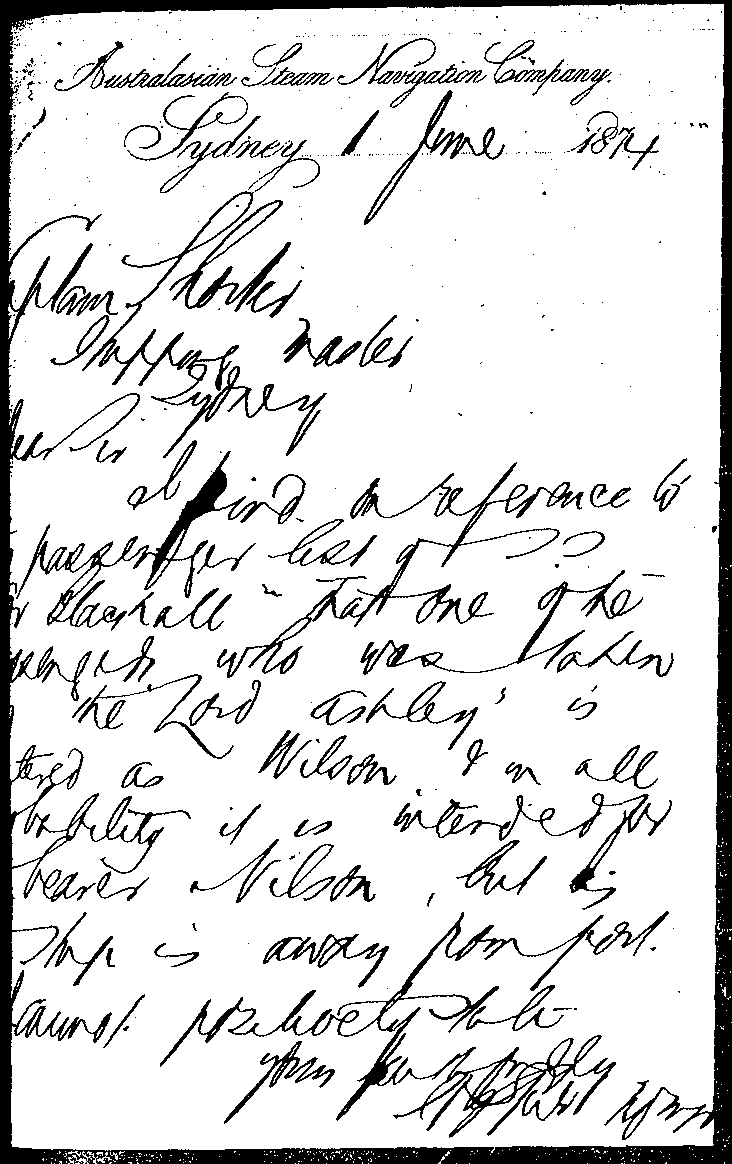 Australasian Steam Navigation Company.
Sydney 1 June 1874
ptain
master
Sydney
ear Sir
I find on reference to
passenger list of
r Blackall" that one of the
sengers who was taken
the Lord Ashley" is
tered as Wilson & in all
bability it is intended for
bearer Nilson, but
ship is away from port.
cannot positively state
yours